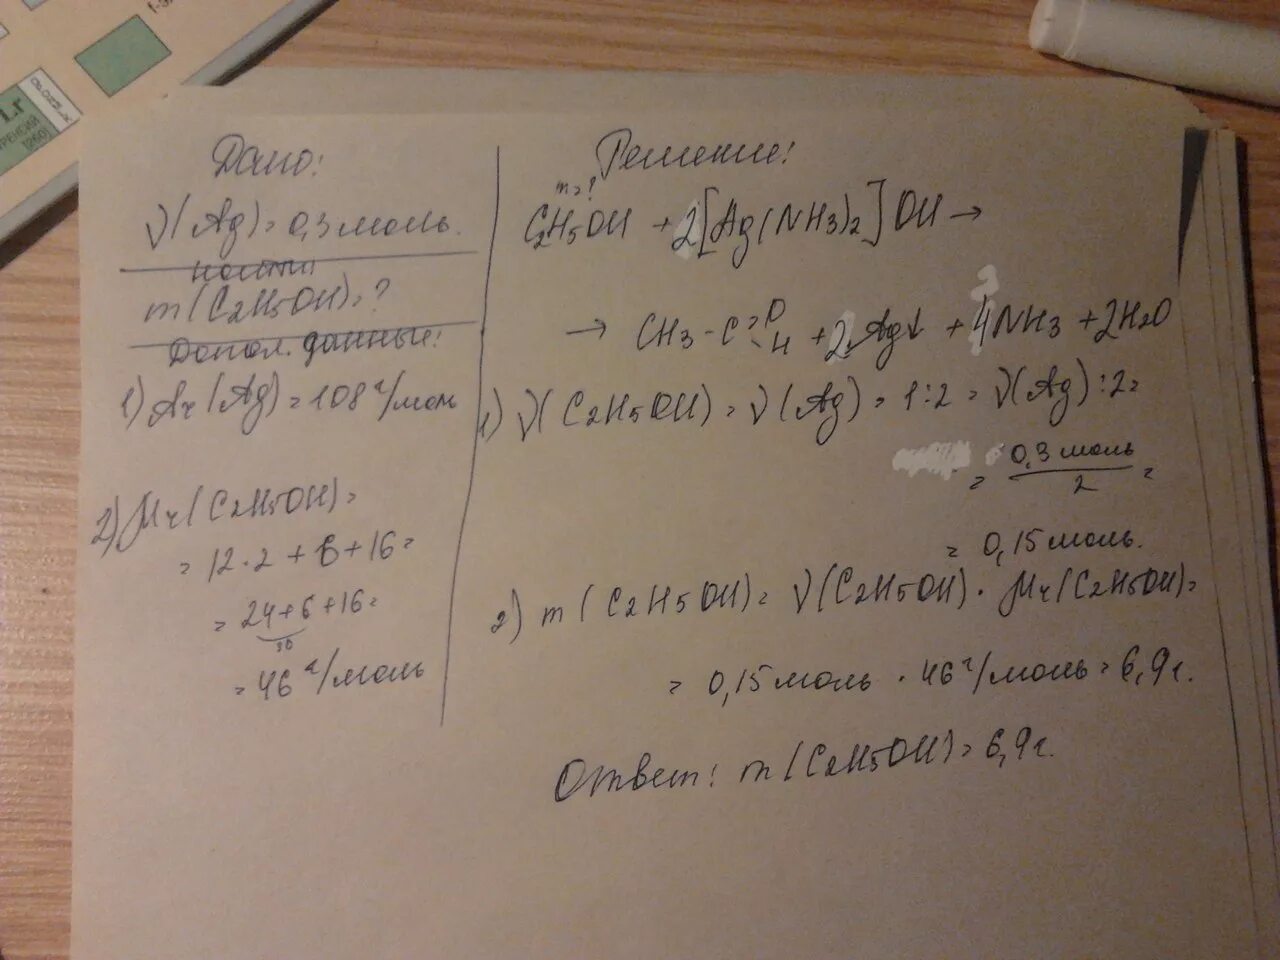 Lr
Дано:
ν(Ag)=0,3 моль.
найти
m(C2H5OH)=?
Допол. данные:
1) Ar(Ag)=108 г/моль
2) Mr(C2H5OH)=
=12·2+6+16=
=24+6+16=
30
=46 г/моль
Решение:
m=?
C2H5OH + 2[Ag(NH3)2]OH →
→ CH3-C=O-H + 2Ag↓ + 4NH3 + 2H2O
1) ν(C2H5OH)=ν(Ag)=1:2=ν(Ag):2=
= 0,3 моль / 2 =
= 0,15 моль.
2) m(C2H5OH)=ν(C2H5OH)·Mr(C2H5OH)=
= 0,15 моль · 46 г/моль = 6,9 г.
Ответ: m(C2H5OH)=6,9 г.